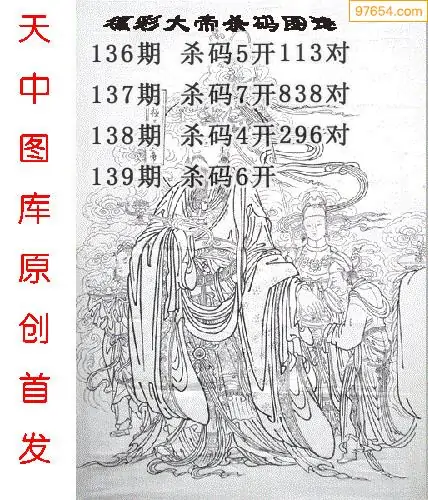 97654.com
福彩大帝杀码图
136期 杀码5开113对
137期 杀码7开838对
138期 杀码4开296对
139期 杀码6开
天中图库原创首发